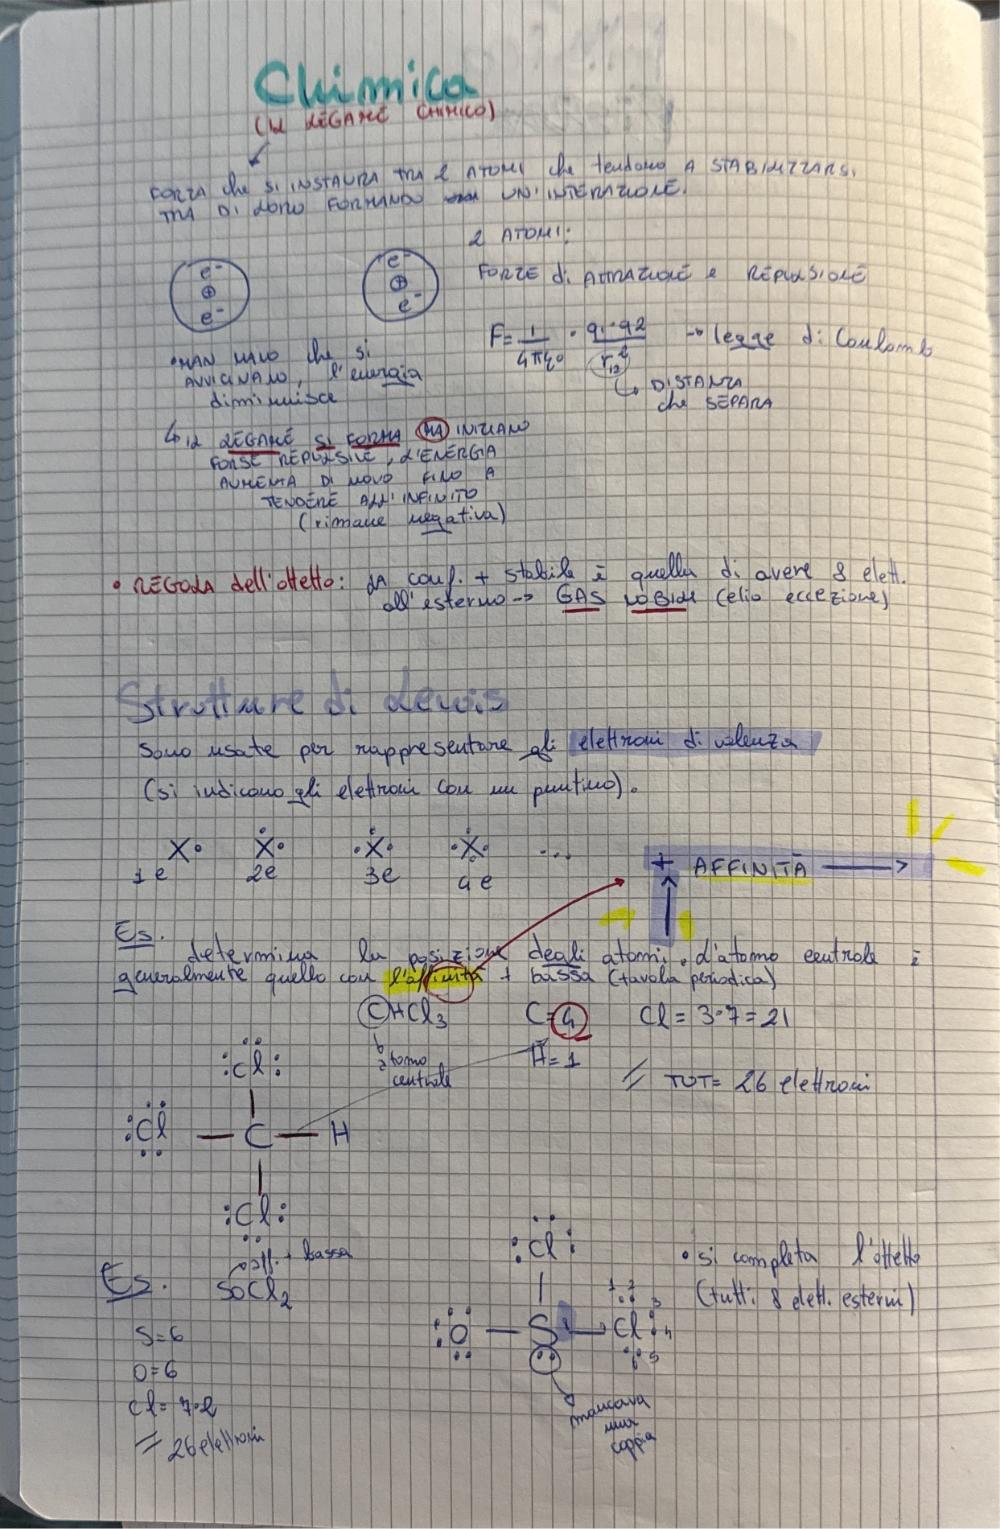 Chimica
(IL LEGAME CHIMICO)
FORZA che SI INSTAURA TRA 2 ATOMI che tendono A STABILIZZARSI
TRA DI LORO FORMANDO UN'INTERAZIONE.
2 ATOMI:
FORZE di ATTRAZIONE e REPULSIONE
e⁻ e⁻
⊕ ⊕
e⁻ e⁻
F = 1/4πε₀ · q₁·q2/r₁₂² → legge di Coulomb
↳ DISTANZA
che SEPARA
•MAN MANO che si
AVVICINANO, l'energia
diminuisce
↳ IL LEGAME SI FORMA MA INIZIANO
FORSE REPULSIVE, L'ENERGIA
AUMENTA DI NUOVO FINO A
TENDERE ALL'INFINITO
(rimane negativa)
• REGOLA dell'ottetto: LA conf. + stabile è quella di avere 8 elett.
all'esterno → GAS NOBILI (elio eccezione)
Strutture di Lewis
Sono usate per rappresentare gli elettroni di valenza
(si indicono gli elettroni con un puntino).
X X X X ...
1e 2e 3e 4e
+ AFFINITÀ →
Es. determina la posizione degli atomi. L'atomo centrale è
generalmente quello con l'affinità + bassa (tavola periodica)
CHCl₃ C=4 Cl = 3·7=21
atomo
centrale
H=1
// TOT= 26 elettroni
Cl
Cl — C — H
Cl
Es. SOCl₂
aff. + bassa
S=6
O=6
Cl= 7·2
= 26 elettroni
Cl
O — S — Cl
1 2 3 4 5
mancava
una
coppia
• si completa l'ottetto
(tutti 8 elett. esterni)